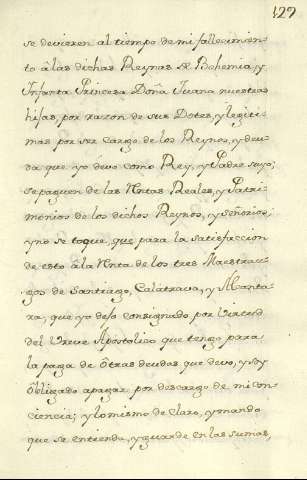 127
se devieren al tiempo de mi fallecimien-
to à las dichas Reynas de Bohemia, y
Infanta Princesa Doña Juana nuestras
hijas, por razon de sus Dotes, y legiti-
mas por ser cargo de los Reynos, y deu-
da que yo devo como Rey, y Padre suyo,
se paguen de las Rentas Reales, y Patri-
monios de los dichos Reynos, y señorios,
y no se toque, que para la satisfaccion
de esto à la Renta de los tres Maestraz-
gos de Santiago, Calatrava, y Alcanta-
ra, que yo dejo consignado por virtud
del Breve Apostolico que tengo para
la paga de otras deudas que devo, y soy
obligado apagar por descargo de mi con-
ciencia; y lo mismo declaro, y mando
que se entienda, y guarde en las sumas,